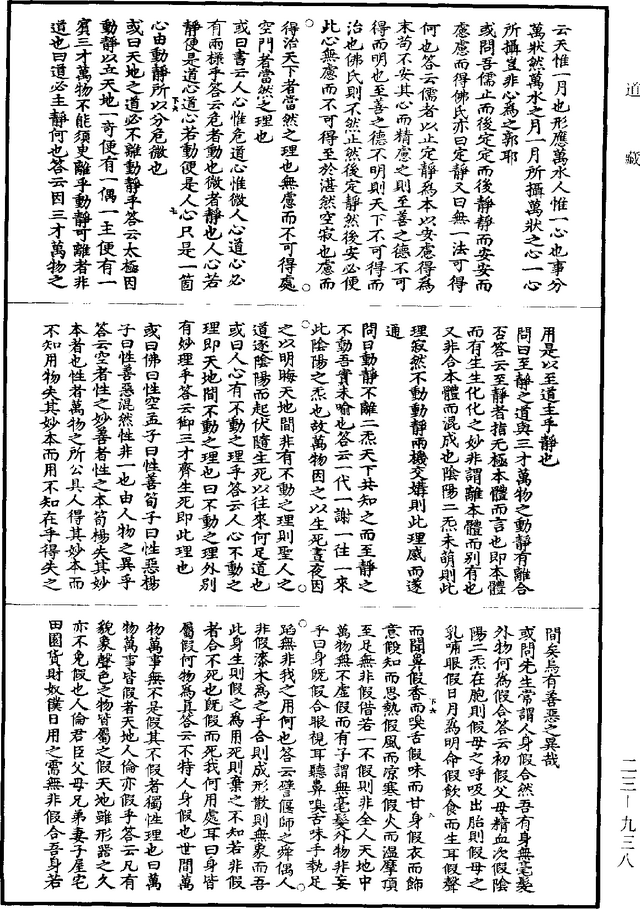 道藏
云天惟一月也形應萬水人惟一心也事分
萬狀然萬水之月一月所攝萬狀之心一心
所攝豈非心為之郭耶
或問吾儒止而後定定而後靜靜而安安而
慮慮而得佛氏亦曰定靜又曰無一法可得
何也答云儒者以止定靜為本以安慮得為
末苟不安其心而精慮之則至善之德不可
得而明也至善之德不明則天下不可得而
治也佛氏則不然止然後定靜然後安必使
此心無慮而不可得至於湛然空寂也慮而
得治天下者當然之理也無慮而不可得處
空門者當然之理也
或曰書云人心惟危道心惟微人心道心必
有兩樣乎答云危者動也微者靜也人心若
靜便是道心道心若動便是人心只是一箇
心由動靜所以分危微也
或曰天地之道必不離動靜乎答云太極因
動靜以立天地一奇便有一偶一主便有一
賓三才萬物不能須臾離乎動靜可離者非
道也曰道必主靜何也答云因三才萬物之
用是以至道主乎靜也
問曰至靜之道與三才萬物之動靜有離合
否答云至靜者指無極本體而言也即本體
而有生生化化之妙非謂離本體而別有也
又非合本體而混成也陰陽二炁未萌則此
理寂然不動動靜兩機交媾則此理感而遂
通
問曰動靜不離二炁天下共知之而至靜之
不動吾實未喻也答云一代一謝一往一來
此陰陽之炁也故萬物因之以生死晝夜因
之以明晦天地間非有不動之理則聖人之
道逐陰陽而起伏隨生死以往來何足道也
或曰人心有不動之理乎答云人心不動之
理即天地間不動之理也曰不動之理外別
有妙理乎答云御三才齊生死即此理也
或曰佛曰性空孟子曰性善荀子曰性惡楊
子曰性善惡混然性非一也由人物之異乎
答云空者性之妙善者性之本荀楊失其妙
本者也性者萬物之所公具人得其妙本而
不知用物失其妙本而用不知在乎得失之
間矣烏有善惡之異哉
或問先生常謂人身假合然吾有身無毫髮
外物何為假合答云初假父母精血次假陰
陽二炁在胞則假母之呼吸出胎則假母之
乳哺眼假日月為明命假飲食而生耳假聲
而聞鼻假香而嗅舌假味而甘身假衣而飾
意假知而思熱假風而凉寒假火而溫摩頂
至足無非假借若一不假則非全人天地中
萬物無不虛假而有子謂無毫髮外物非妄
乎曰身既假合眼視耳聽鼻嗅舌味手執足
蹈無非我之用何也答云譬偃師之舞偶人
非假漆木為之乎合則成形散則無象而吾
此身生則假之為用死則棄之不知若非假
者合不死也既假而死我何用處耳曰身皆
屬假何物為真答云不特人身假也世間萬
物萬事無不是假其不假者獨性理也曰萬
物萬事皆假者天地人倫亦假乎答云凡有
貌象聲色之物皆屬之假天地雖形器之久
亦不免假也人倫君臣父母兄弟妻子屋宅
田園貨財奴僕日用之需無非假合吾身若
二三—九三八